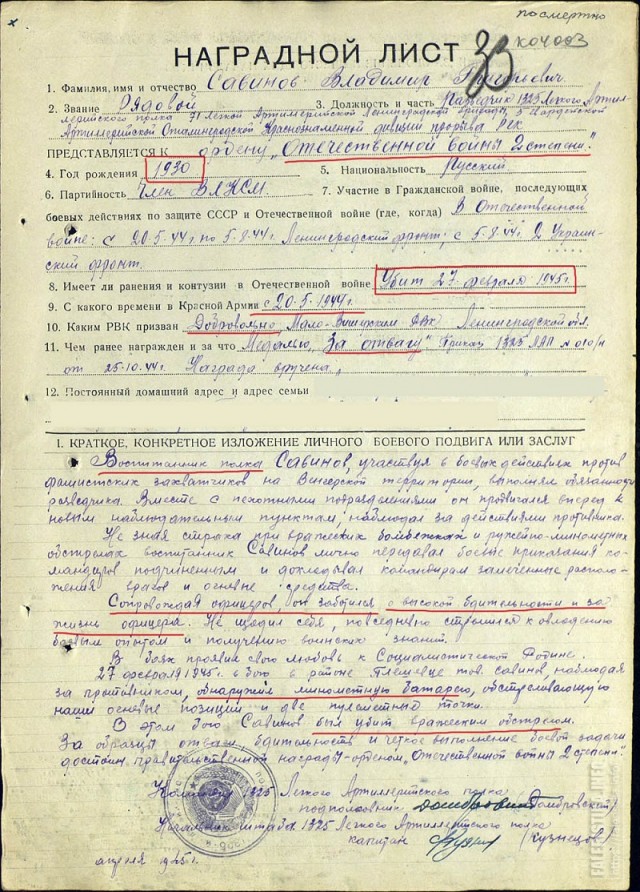 посмертно
НАГРАДНОЙ ЛИСТ
1. Фамилия, имя и отчество Савинов Владимир
2. Звание Рядовой 3. Должность и часть Разведчик 1325 Легкого Артил-
лерийского полка 71 Легкой Артиллерийской Ленинградской бригады, 5 Гвардейской
Артиллерийской Сталинградской Краснознаменной дивизии прорыва РГК
ПРЕДСТАВЛЯЕТСЯ К ордену „Отечественной войны 2 степени“
4. Год рождения 1930 5. Национальность Русский
6. Партийность Член ВЛКСМ 7. Участие в Гражданской войне, последующих
боевых действиях по защите СССР и Отечественной войне (где, когда) В Отечественной
войне: с 20.5.44г по 5.8.44г. Ленинградский фронт, с 5.8.44г 2 Украин-
ский фронт.
8. Имеет ли ранения и контузии в Отечественной войне Убит 27 февраля 1945г.
9. С какого времени в Красной Армии с 20.5.1944г.
10. Каким РВК призван Добровольно, Мало-Вишерским РВК Ленинградской обл.
11. Чем ранее награжден и за что Медалью „За отвагу“ Приказ 1325 ЛАП № 010/н
от 25.10.44г. Награда вручена
12. Постоянный домашний адрес и адрес семьи
I. КРАТКОЕ, КОНКРЕТНОЕ ИЗЛОЖЕНИЕ ЛИЧНОГО БОЕВОГО ПОДВИГА ИЛИ ЗАСЛУГ
Воспитанник полка Савинов, участвуя в боевых действиях против
фашистских захватчиков на Венгерской территории, выполнял обязанности
разведчика. Вместе с пехотными подразделениями он продвигался вперед к
новым наблюдательным пунктам, наблюдал за действиями противника.
Не зная страха при вражеских бомбежках и ружейно-минометных
обстрелах воспитанник Савинов лично передавал боевые приказания ко-
мандиров подчиненным и докладывал командирам замеченные располо-
жения врагов и огневые средства.
Сопровождая офицеров он заботился о высокой бдительности и за
жизнь офицера. Не щадил себя, повседневно стремился к овладению
боевым опытом и получению воинских знаний.
В боях проявил свою любовь к Социалистической Родине.
27 февраля 1945г. в бою в районе тов. Савинов, наблюдая
за противником, обнаружил минометную батарею, обстреливающую
наши огневые позиции и две пулеметных точки.
В этом бою Савинов был убит вражеским обстрелом.
За образцы отваги бдительность и четкое выполнение боевой задачи
достоин правительственной награды-орденом „Отечественной войны 2 степени“.
Командир 1325 Легкого Артиллерийского полка
подполковник (Домбровский)
Начальник штаба 1325 Легкого Артиллерийского полка
капитан (Кузнецов)
апреля 1945г.